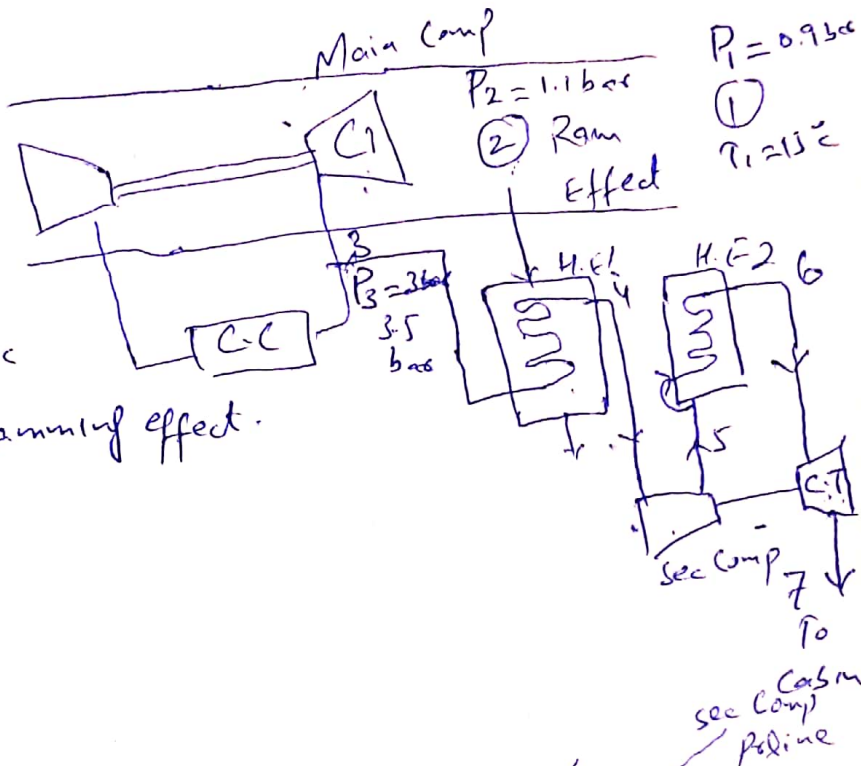 Main Comp
P₁ = 0.9 bar
①
T₁ = 15°c
P₂ = 1.1 bar
② Ram
Effect
C1
3
P₃ =
3.5
bar
C.C
c
amming effect.
H.E1
4
H.E2
6
5
C.T
sec Comp
7
To
Cabin
sec Comp